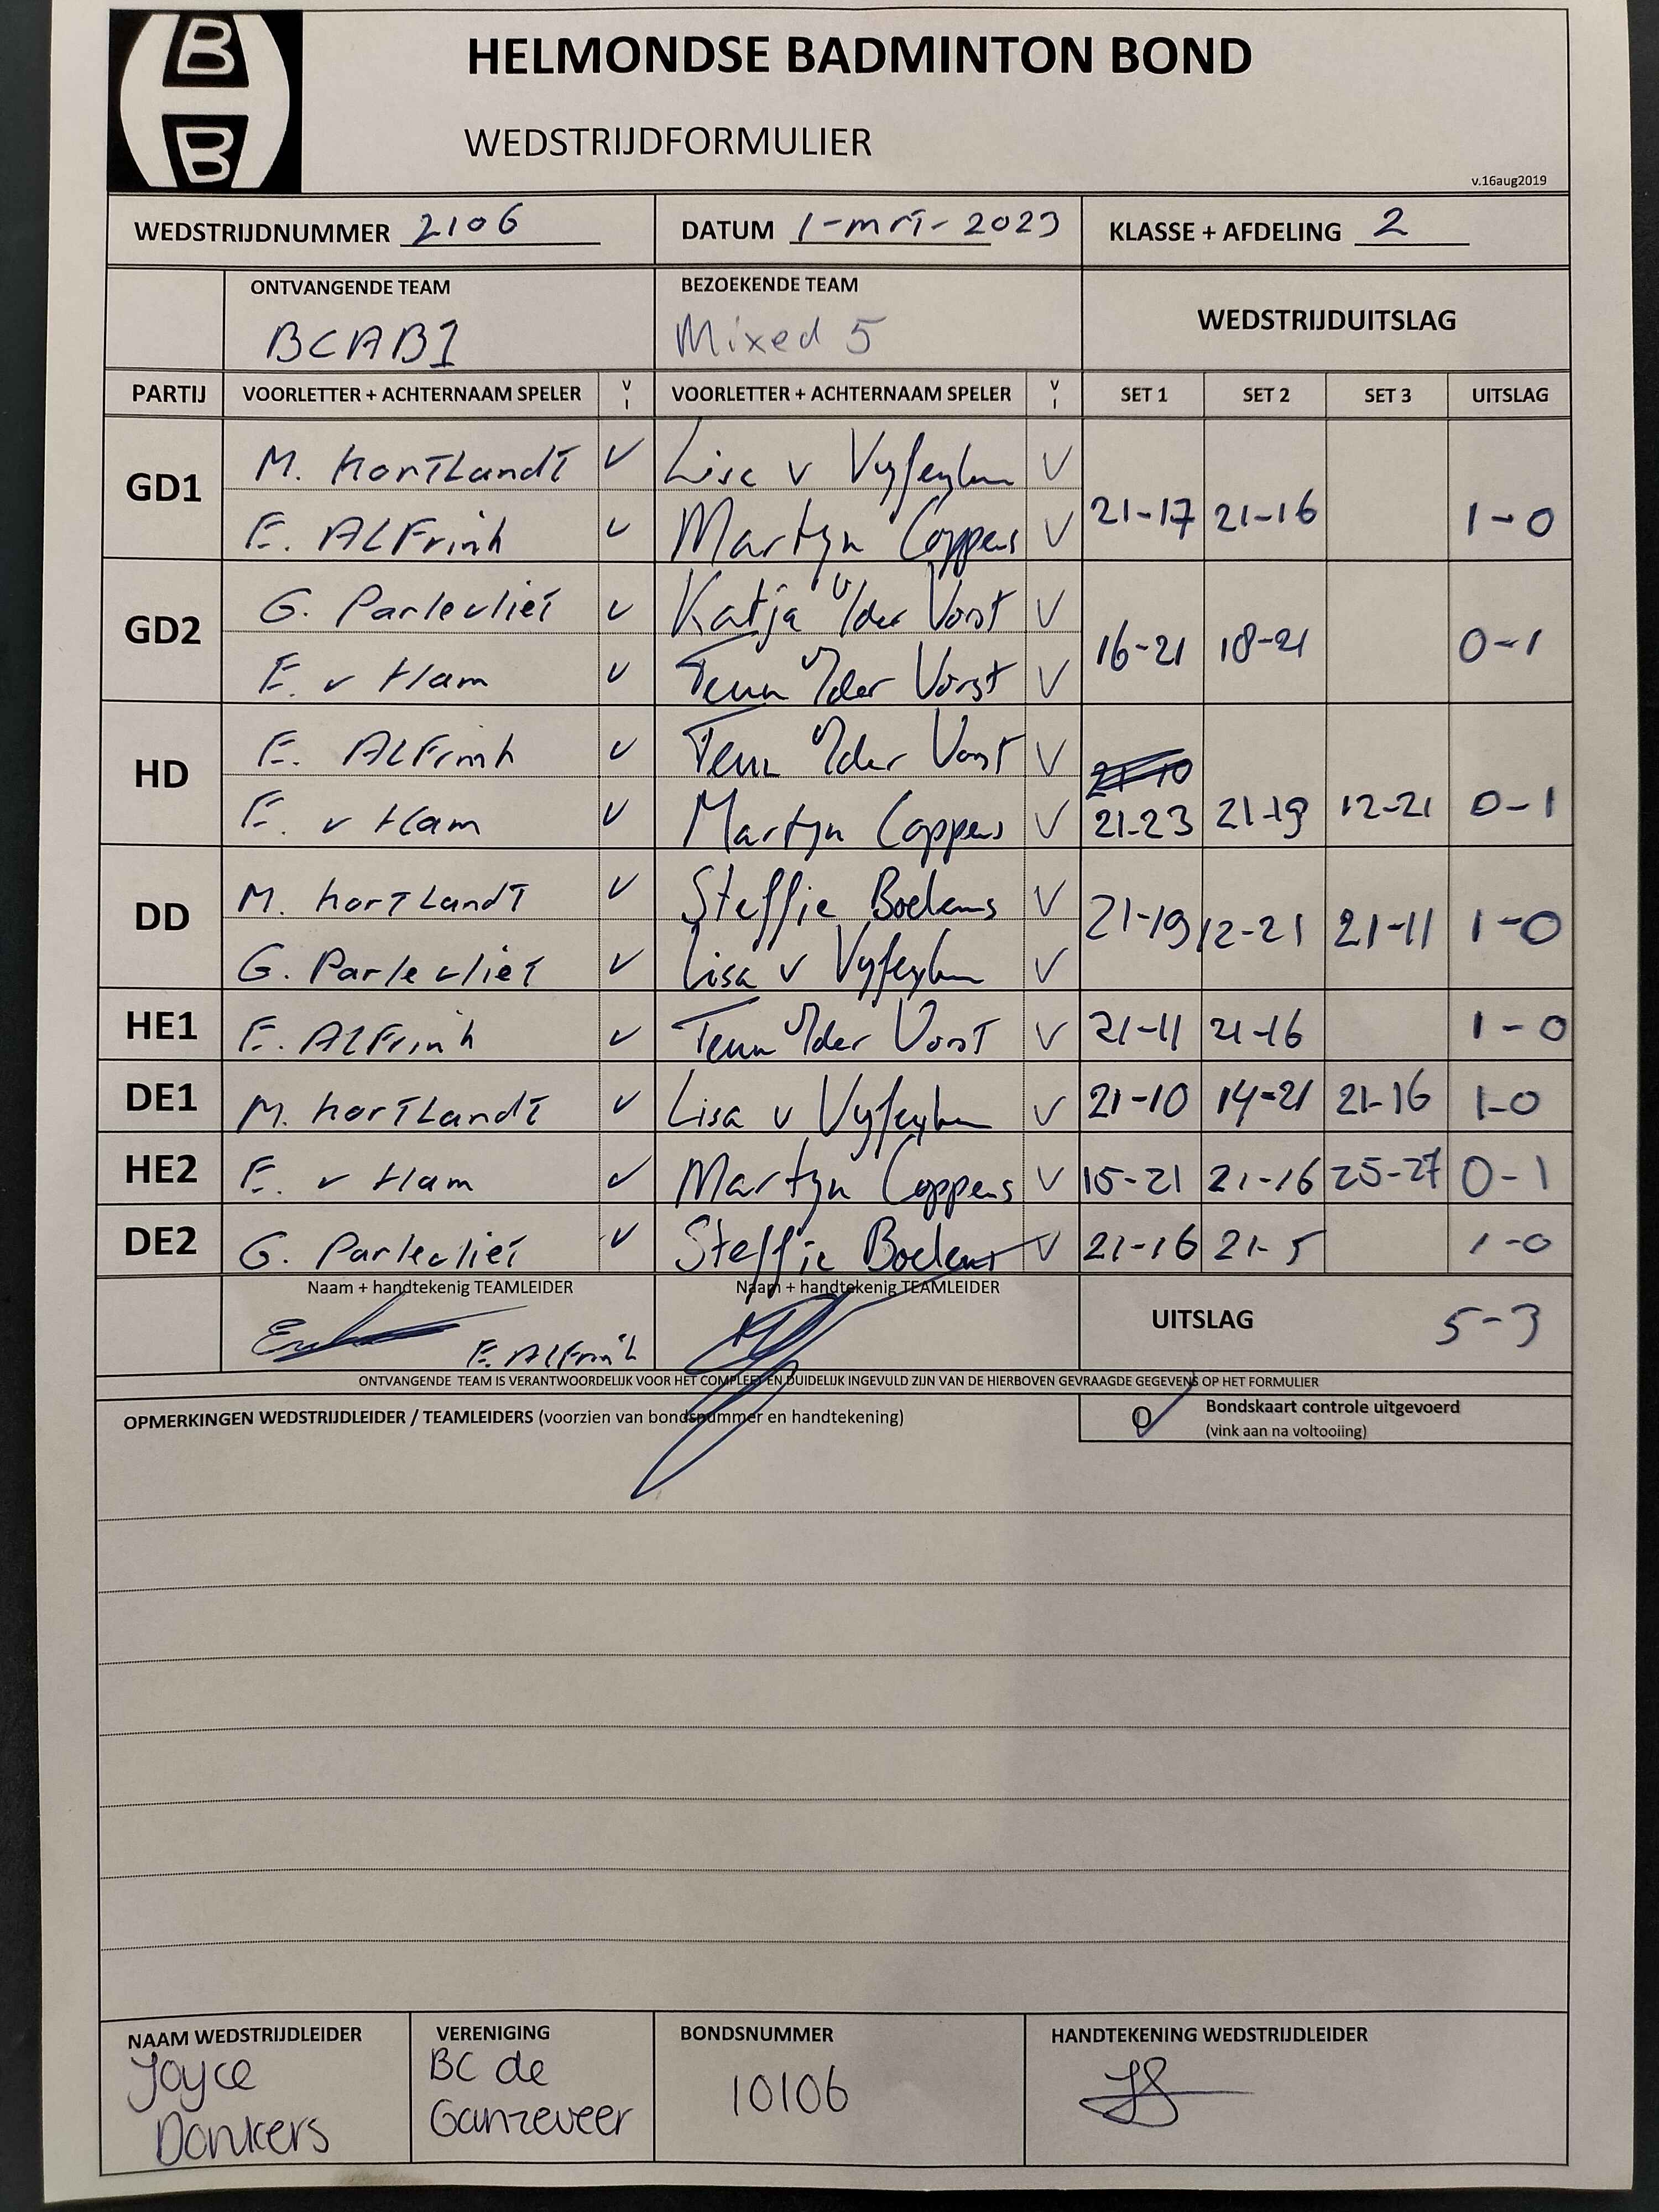 B
B
HELMONDSE BADMINTON BOND
WEDSTRIJDFORMULIER
v.16aug2019
WEDSTRIJDNUMMER 2106 DATUM 1-mrt-2023 KLASSE + AFDELING 2
ONTVANGENDE TEAM BEZOEKENDE TEAM WEDSTRIJDUITSLAG
BCAB1 Mixed 5
PARTIJ VOORLETTER + ACHTERNAAM SPELER V I VOORLETTER + ACHTERNAAM SPELER V I SET 1 SET 2 SET 3 UITSLAG
GD1 M. KortLandt V Lisa v Vyfeyken V
E. ALFrink V Martyn Coppens V 21-17 21-16 1-0
GD2 G. Parlevliet V Katja v/der Vorst V
E. v Ham V Teun v/der Vorst V 16-21 18-21 0-1
HD E. ALFrink V Teun v/der Vorst V
E. v Ham V Martyn Coppens V 21-23 21-19 12-21 0-1
DD M. KortLandt V Steffie Boelens V
G. Parlevliet V Lisa v Vyfeyken V 21-19 12-21 21-11 1-0
HE1 E. ALFrink V Teun v/der Vorst V 21-11 21-16 1-0
DE1 M. KortLandt V Lisa v Vyfeyken V 21-10 14-21 21-16 1-0
HE2 E. v Ham V Martyn Coppens V 15-21 21-16 25-27 0-1
DE2 G. Parlevliet V Steffie Boelens V 21-16 21-5 1-0
Naam + handtekenig TEAMLEIDER Naam + handtekenig TEAMLEIDER
E. ALFrink UITSLAG 5-3
ONTVANGENDE TEAM IS VERANTWOORDELIJK VOOR HET COMPLEET EN DUIDELIJK INGEVULD ZIJN VAN DE HIERBOVEN GEVRAAGDE GEGEVENS OP HET FORMULIER
OPMERKINGEN WEDSTRIJDLEIDER / TEAMLEIDERS (voorzien van bondsnummer en handtekening)
O Bondskaart controle uitgevoerd
(vink aan na voltooiing)
NAAM WEDSTRIJDLEIDER VERENIGING BONDSNUMMER HANDTEKENING WEDSTRIJDLEIDER
Joyce Donkers BC de Ganzeveer 10106